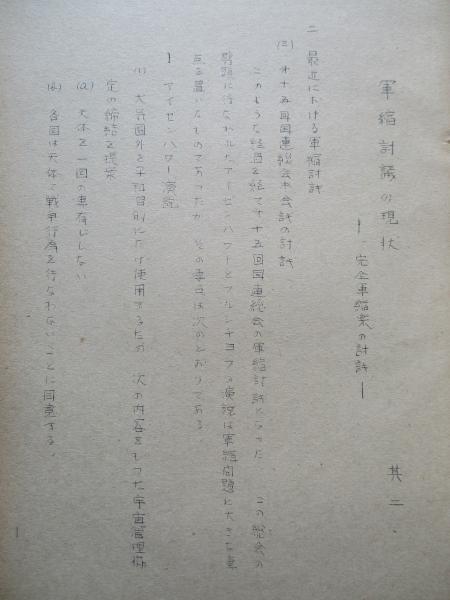 軍縮討議の現状
― 完全軍縮案の討議 ―
其二、
二 最近における軍縮討議
(三) 第十五回国連総会本会議の討議
このような経過を経て第十五回国連総会の軍縮討議となった この総会の
劈頭に行なわれたアイゼンハワーとフルシチョフの演説は軍縮問題に大きな重
点を置いたものであったが その要旨は次のとおりである
1 アイゼンハワー演説
(1) 大気圏外を平和目的にだけ使用するため 次の内容をもつた宇宙管理協
定の締結を提案
(a) 天体を一国の専有としない
(b) 各国は天体で戦争行為を行なわないことに同意する、